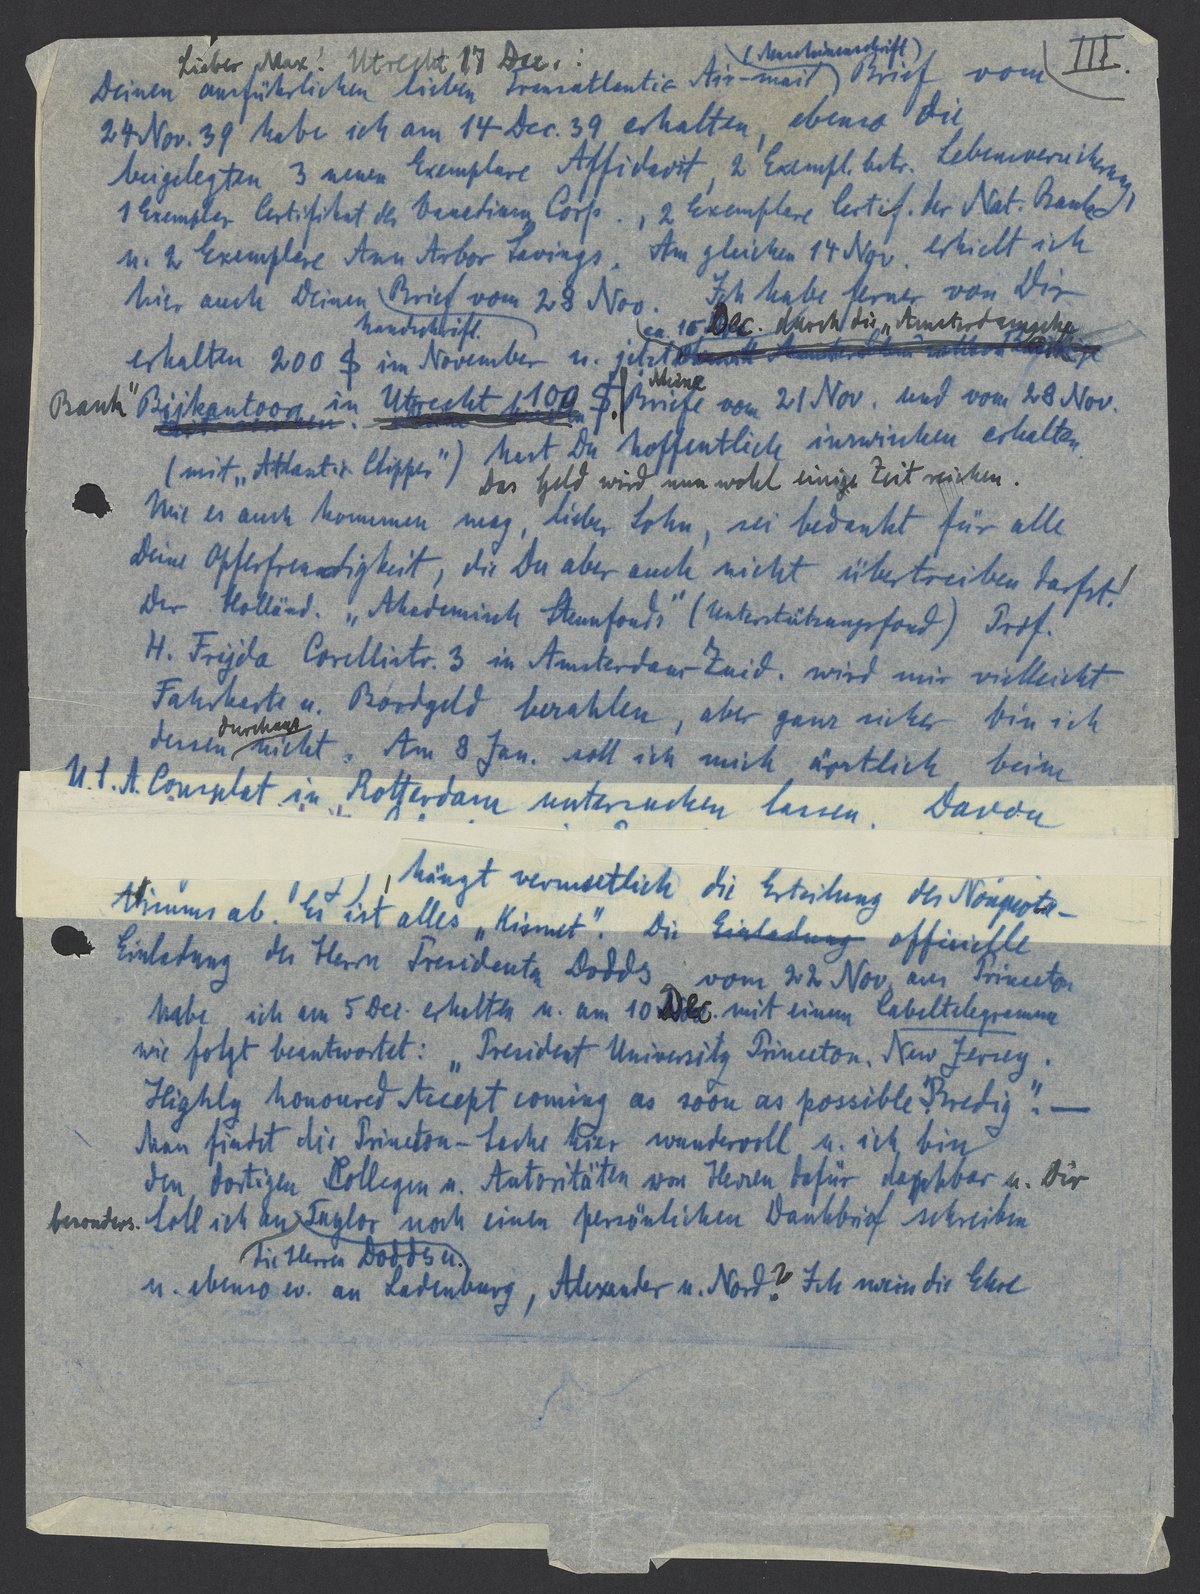 III.
Lieber Max! Utrecht 17 Dec.:
(Maschinenschrift)
Deinen ausführlichen lieben Transatlantic Air-mail Brief vom
24 Nov. 39 habe ich am 14 Dec. 39 erhalten, ebenso die
beigelegten 3 neuen Exemplare Affidavit, 2 Exempl. betr. Lebensversicherung,
1 Exemplar Certifikat der Vanadium Corp., 2 Exemplare Certif. der Nat. Bank
u. 2 Exemplare Ann Arbor Savings. Am gleichen 14 Nov. erhielt ich
hier auch Deinen Brief vom 28 Nov. Ich habe ferner von Dir
handschriftl.
ca 16 Dec. durch die „Amsterdamsche
erhalten 200 $ im November u. jetzt
Bank" Bijkantoor in Utrecht 100 $. Meine Briefe vom 21 Nov. und vom 28 Nov.
(mit „Atlantic Clipper") hast Du hoffentlich inzwischen erhalten.
Das Geld wird nun wohl einige Zeit reichen.
Wie es auch kommen mag, lieber Sohn, sei bedankt für alle
Deine Opferfreudigkeit, die Du aber auch nicht übertreiben darfst!
Der Holländ. „Akademisch Steunfonds" (Unterstützungsfond) Prof.
H. Frijda Corellistr. 3 in Amsterdam-Zuid. wird mir vielleicht
Fahrkarte u. Bordgeld bezahlen, aber ganz sicher bin ich
dessen durchaus nicht. Am 8 Jan. soll ich mich ärztlich beim
U.S.A. Consulat in Rotterdam untersuchen lassen. Davon
hängt vermutlich die Erteilung des Nonquota-
Visums ab. Es ist alles „Kismet". Die Einladung officielle
Einladung des Herrn Presidenten Dodds vom 22 Nov. aus Princeton
habe ich am 5 Dec. erhalten u. am 10 Dec. mit einem Cabeltelegramm
wie folgt beantwortet: „President University Princeton. New Jersey.
Highly honoured Accept coming as soon as possible Bredig". —
Man findet die Princeton-Sache hier wundervoll u. ich bin
den dortigen Collegen u. Autoritäten von Herzen dafür dankbar u. Dir
besonders. Soll ich an Taylor noch einen persönlichen Dankbrief schreiben
die Herren Dodds u.
u. ebenso ev. an Ladenburg, Alexander u. Nord? Ich weiss die Ehre